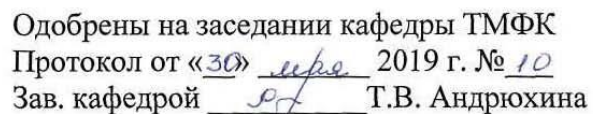 Одобрены на заседании кафедры ТМФК
Протокол от «30» 2019 г. № 10
Зав. кафедрой Т.В. Андрюхина